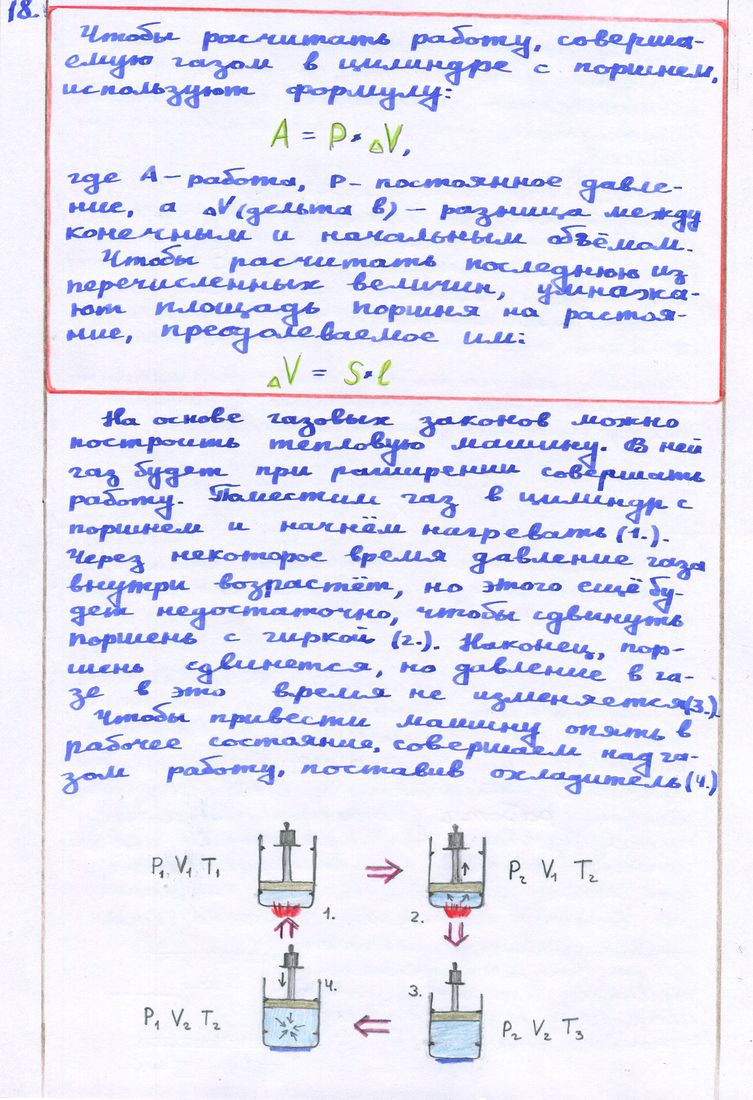 18.
Чтобы расчитать работу, соверша-
емую газом в цилиндре с поршнем,
используют формулу:
A = P · ΔV,
где A – работа, P – постоянное давле-
ние, а ΔV (дельта в) – разница между
конечным и начальным объёмом.
Чтобы расчитать последнюю из
перечисленных величин, умножа-
ют площадь поршня на растоя-
ние, преодолеваемое им:
ΔV = S · l
На основе газовых законов можно
построить тепловую машину. В ней
газ будет при расширении совершать
работу. Поместим газ в цилиндр с
поршнем и начнём нагревать (1.).
Через некоторое время давление газа
внутри возрастёт, но этого ещё бу-
дет недостаточно, чтобы сдвинуть
поршень с гиркой (2.). Наконец, пор-
шень сдвинется, но давление в га-
зе в это время не изменяется (3.).
Чтобы привести машину опять в
рабочее состояние, совершаем над га-
зом работу, поставив охладитель (4.)
P₁, V₁, T₁
1.
2.
P₂ V₁ T₂
P₁ V₂ T₂
4.
3.
P₂ V₂ T₃